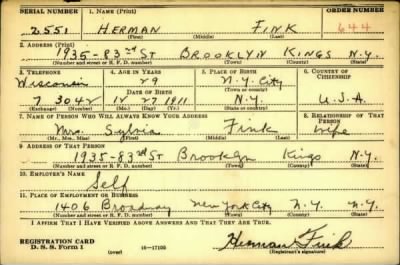 SERIAL NUMBER 1. NAME (Print) ORDER NUMBER
2551 HERMAN FINK 644
(First) (Middle) (Last)
2. ADDRESS (Print)
1935-83rd ST BROOKLYN KINGS N.Y.
(Number and street or R. F. D. number) (Town) (County) (State)
3. TELEPHONE 4. AGE IN YEARS 5. PLACE OF BIRTH 6. COUNTRY OF CITIZENSHIP
Wisconsin 29 N.Y. City
DATE OF BIRTH (Town or county)
7 3042 12 27 1911 N.Y. U.S.A.
(Exchange) (Number) (Mo.) (Day) (Yr.) (State or country)
7. NAME OF PERSON WHO WILL ALWAYS KNOW YOUR ADDRESS 8. RELATIONSHIP OF THAT PERSON
Mrs. Sylvia Fink wife
(Mr., Mrs., Miss) (First) (Middle) (Last)
9. ADDRESS OF THAT PERSON
1935-83rd St Brooklyn Kings N.Y.
(Number and street or R. F. D. number) (Town) (County) (State)
10. EMPLOYER'S NAME
Self
11. PLACE OF EMPLOYMENT OR BUSINESS
1406 Broadway New York City N.Y. N.Y.
(Number and street or R. F. D. number) (Town) (County) (State)
I AFFIRM THAT I HAVE VERIFIED ABOVE ANSWERS AND THAT THEY ARE TRUE.
REGISTRATION CARD
D. S. S. Form 1 (over) 16-17105 Herman Fink
(Registrant's signature)